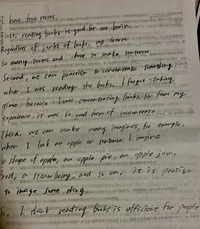 I have four reasons.
First, reading books is good for our brain.
Regardless of of books, we learn
so many terms and how to make sentence
Second, we can practice to concentrate something.
when I was reading the books, I forgot taking
time because I was concentrating books. So from my
experience, it was so good form of concentrate
Third, we can make many imagines, for example,
when I look an apple on sentence, I imagine
a shape of apple, an apple pie, an apple jam,
red, a strawberry, and so on. it is practice
to image some thing.
So, I think reading books is efficient for people